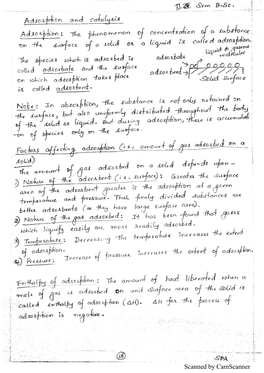 II Sem B.Sc.
Adsorption and catalysis
Adsorption: The phenomenon of concentration of a substance
on the surface of a solid or a liquid is called adsorption.
The species which is adsorbed is
called adsorbate and the surface
on which adsorption takes place
is called adsorbent.
adsorbate
liquid & gaseous molecules
adsorbent
Solid surface
Note: In absorption, the substance is not only retained on
the surface, but also uniformly distributed throughout the body
of the solid or liquid. But during adsorption, there is accumulati
-on of species only on the surface.
Factors affecting adsorption (i.e., amount of gas adsorbed on a
solid)
The amount of gas adsorbed on a solid depends upon -
1) Nature of the adsorbent (i.e., surface): Greater the surface
area of the adsorbent greater is the adsorption at a given
temperature and pressure. Thus finely divided substances are
better adsorbents (as they have large surface area).
2) Nature of the gas adsorbed: It has been found that gases
which liquify easily are more readily adsorbed.
3) Temperature: Decreasing the temperature increases the extent
of adsorption.
4) Pressure: Increase of pressure increases the extent of adsorption.
Enthalpy of adsorption: The amount of heat liberated when a
mole of gas is adsorbed on unit surface area of the solid is
called enthalpy of adsorption (ΔH). ΔH for the process of
adsorption is negative.
SPA
Scanned by CamScanner